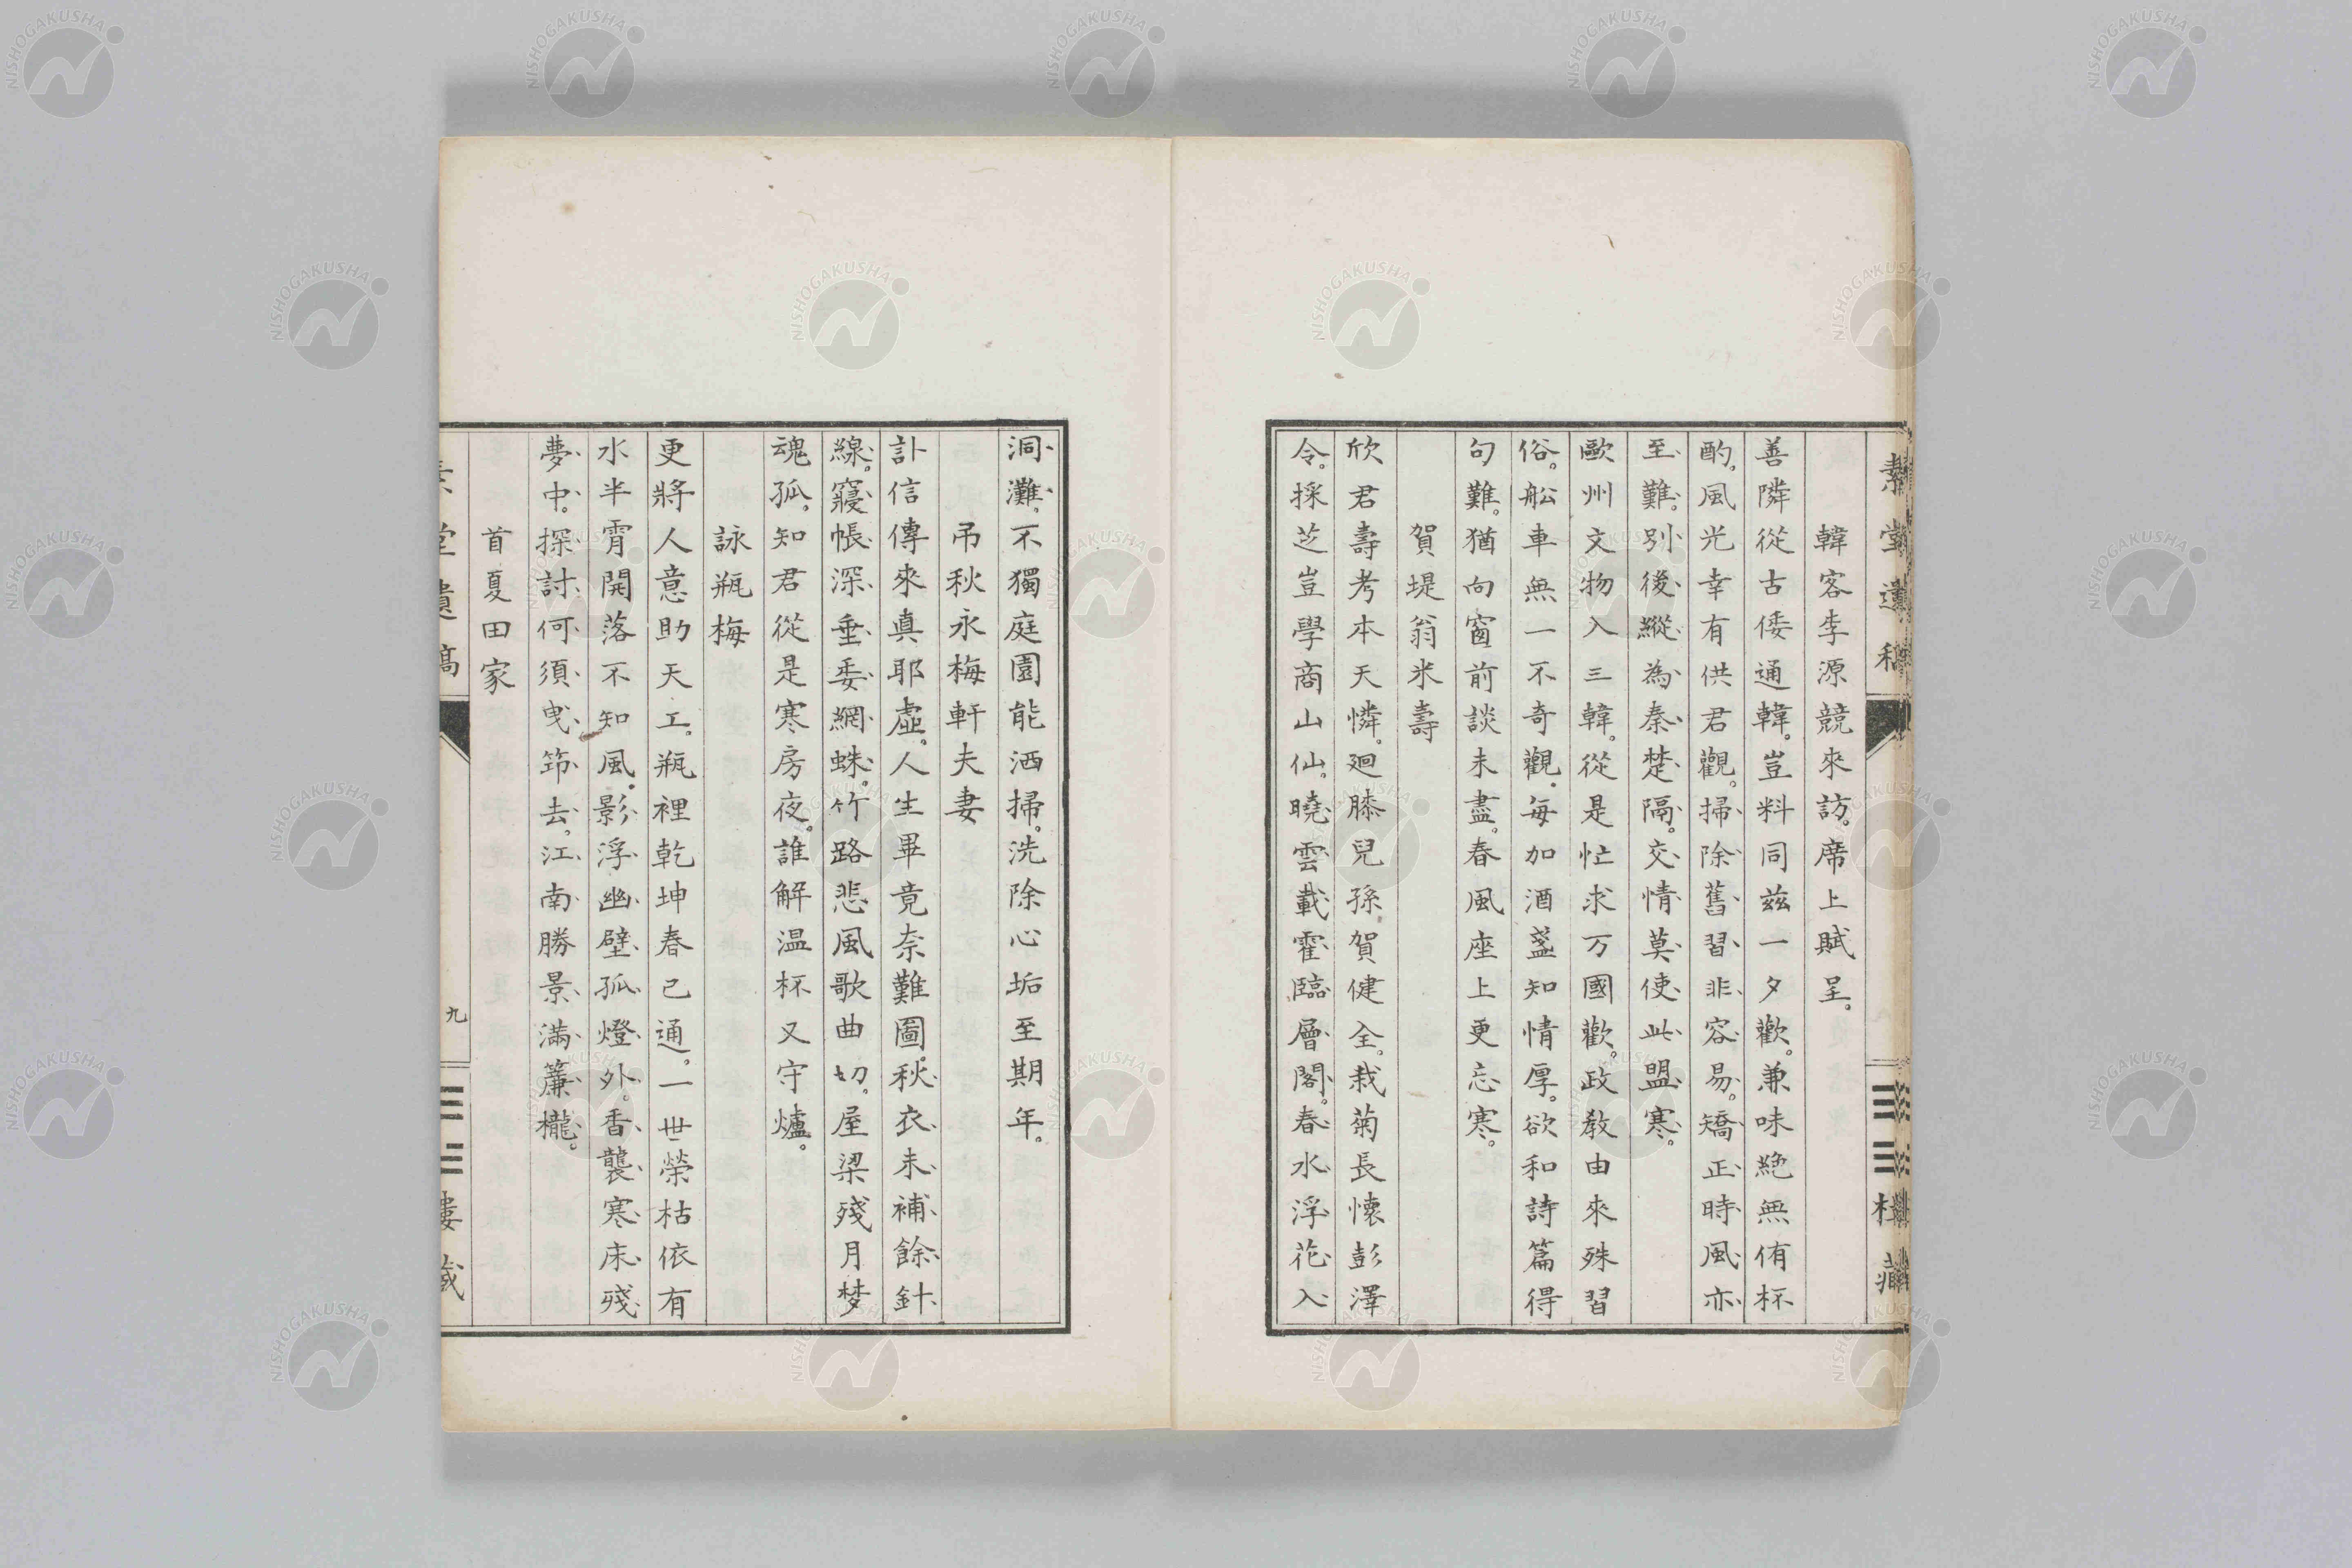 素堂遺稿
樓藏
韓客李源競來訪。席上賦呈。
善隣從古倭通韓。豈料同茲一夕歡。兼味絶無侑杯
酌。風光幸有供君觀。掃除舊習非容易。矯正時風亦
至難。別後縱為秦楚隔。交情莫使此盟寒。
歐州文物入三韓。從是忙求万國歡。政教由來殊習
俗。舩車無一不奇觀。每加酒盞知情厚。欲和詩篇得
句難。猶向窗前談未盡。春風座上更忘寒。
賀堤翁米壽
欣君壽考本天憐。廻膝兒孫賀健全。栽菊長懷彭澤
令。採芝豈學商山仙。曉雲載霍臨層閣。春水浮花入
洞灘。不獨庭園能洒掃。洗除心垢至期年。
弔秋永梅軒夫妻
訃信傳來真耶虛。人生畢竟奈難圖。秋衣未補餘針
線。寢帳深垂委網蛛。竹路悲風歌曲切。屋梁殘月梦
魂孤。知君從是寒房夜。誰解温杯又守爐。
詠瓶梅
更將人意助天工。瓶裡乾坤春已通。一世榮枯依有
水半霄開落不知風。影浮幽壁孤燈外。香襲寒床殘
夢中。探討何須曳笻去。江南勝景滿簾櫳。
首夏田家
素堂遺稿
九
樓藏
NISHOGAKUSHA